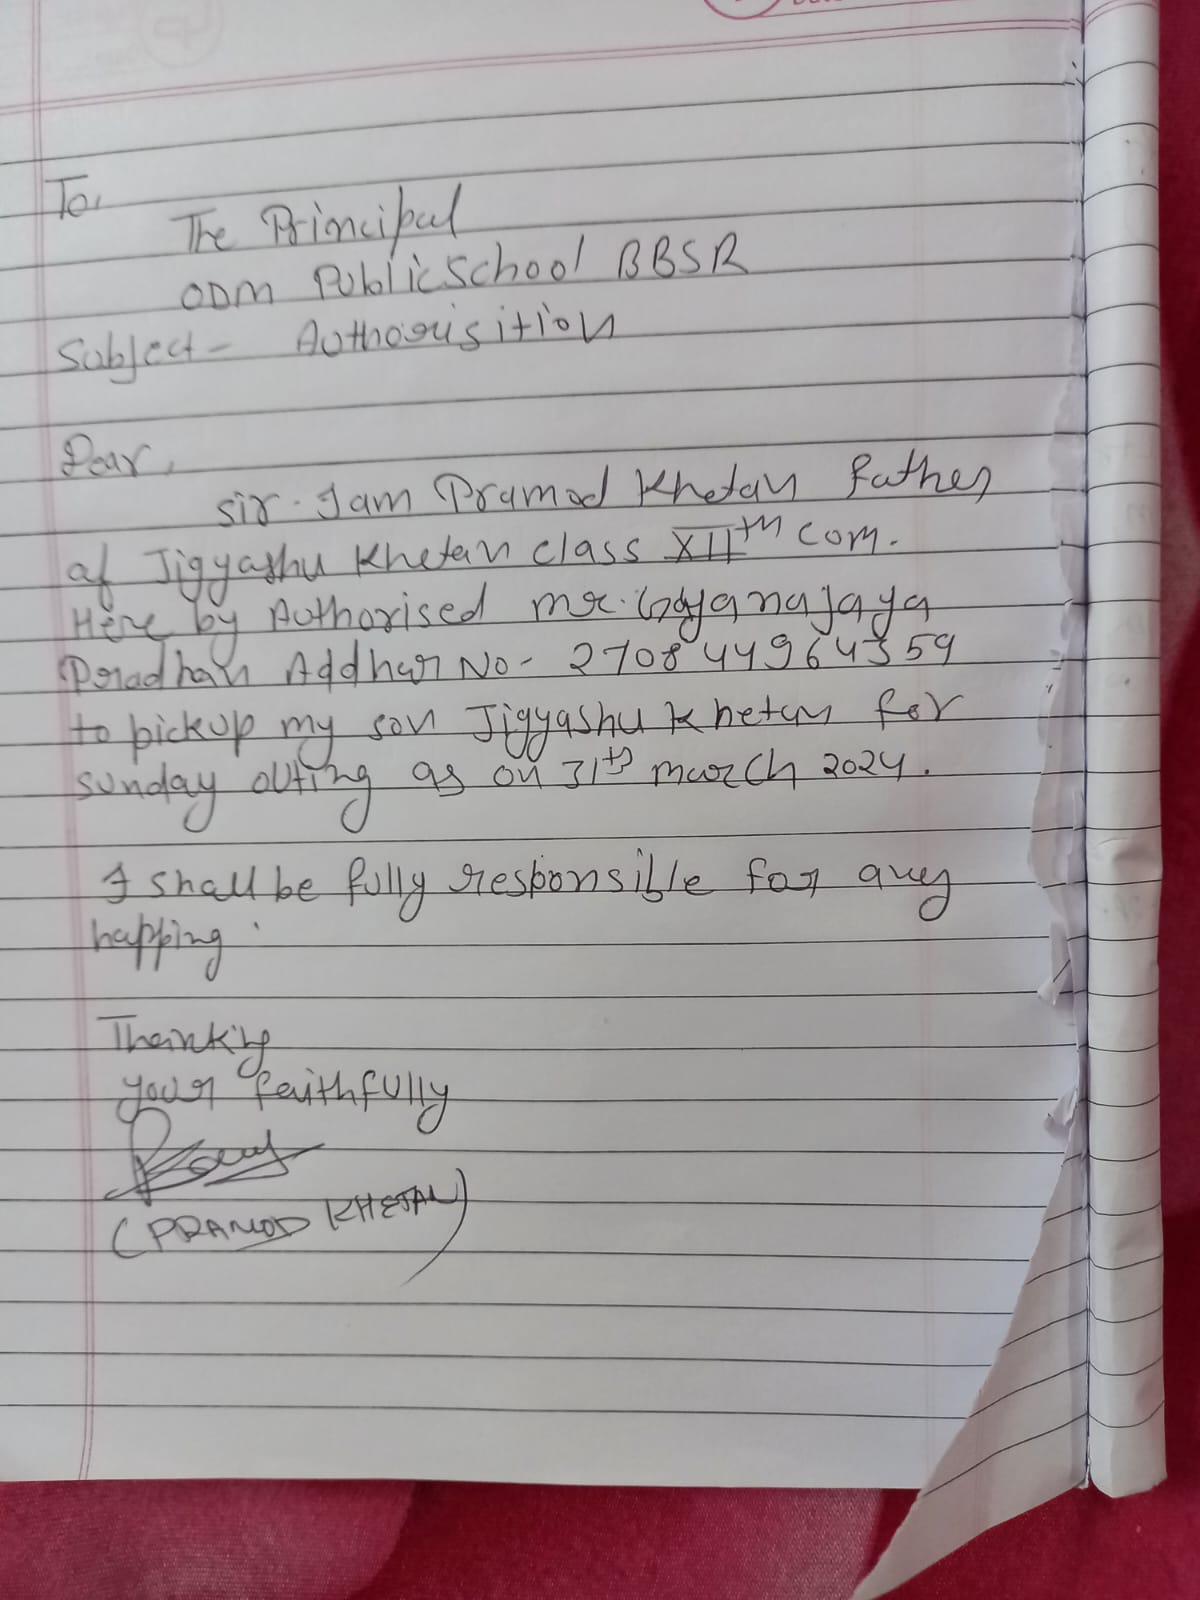 To,
The Principal
ODM Public School BBSR
Subject - Authorisition
Dear,
Sir. I am Pramod Khetan father
of Jigyashu Khetan class XIIth com.
Here by Authorised mr. Gyanajaya
Pradhan Addhar No - 270844964359
to pickup my son Jigyashu Khetan for
Sunday outing as on 31th march 2024.
I shall be fully responsible for any
happing.
Thanking
your faithfully
(PRAMOD KHETAN)